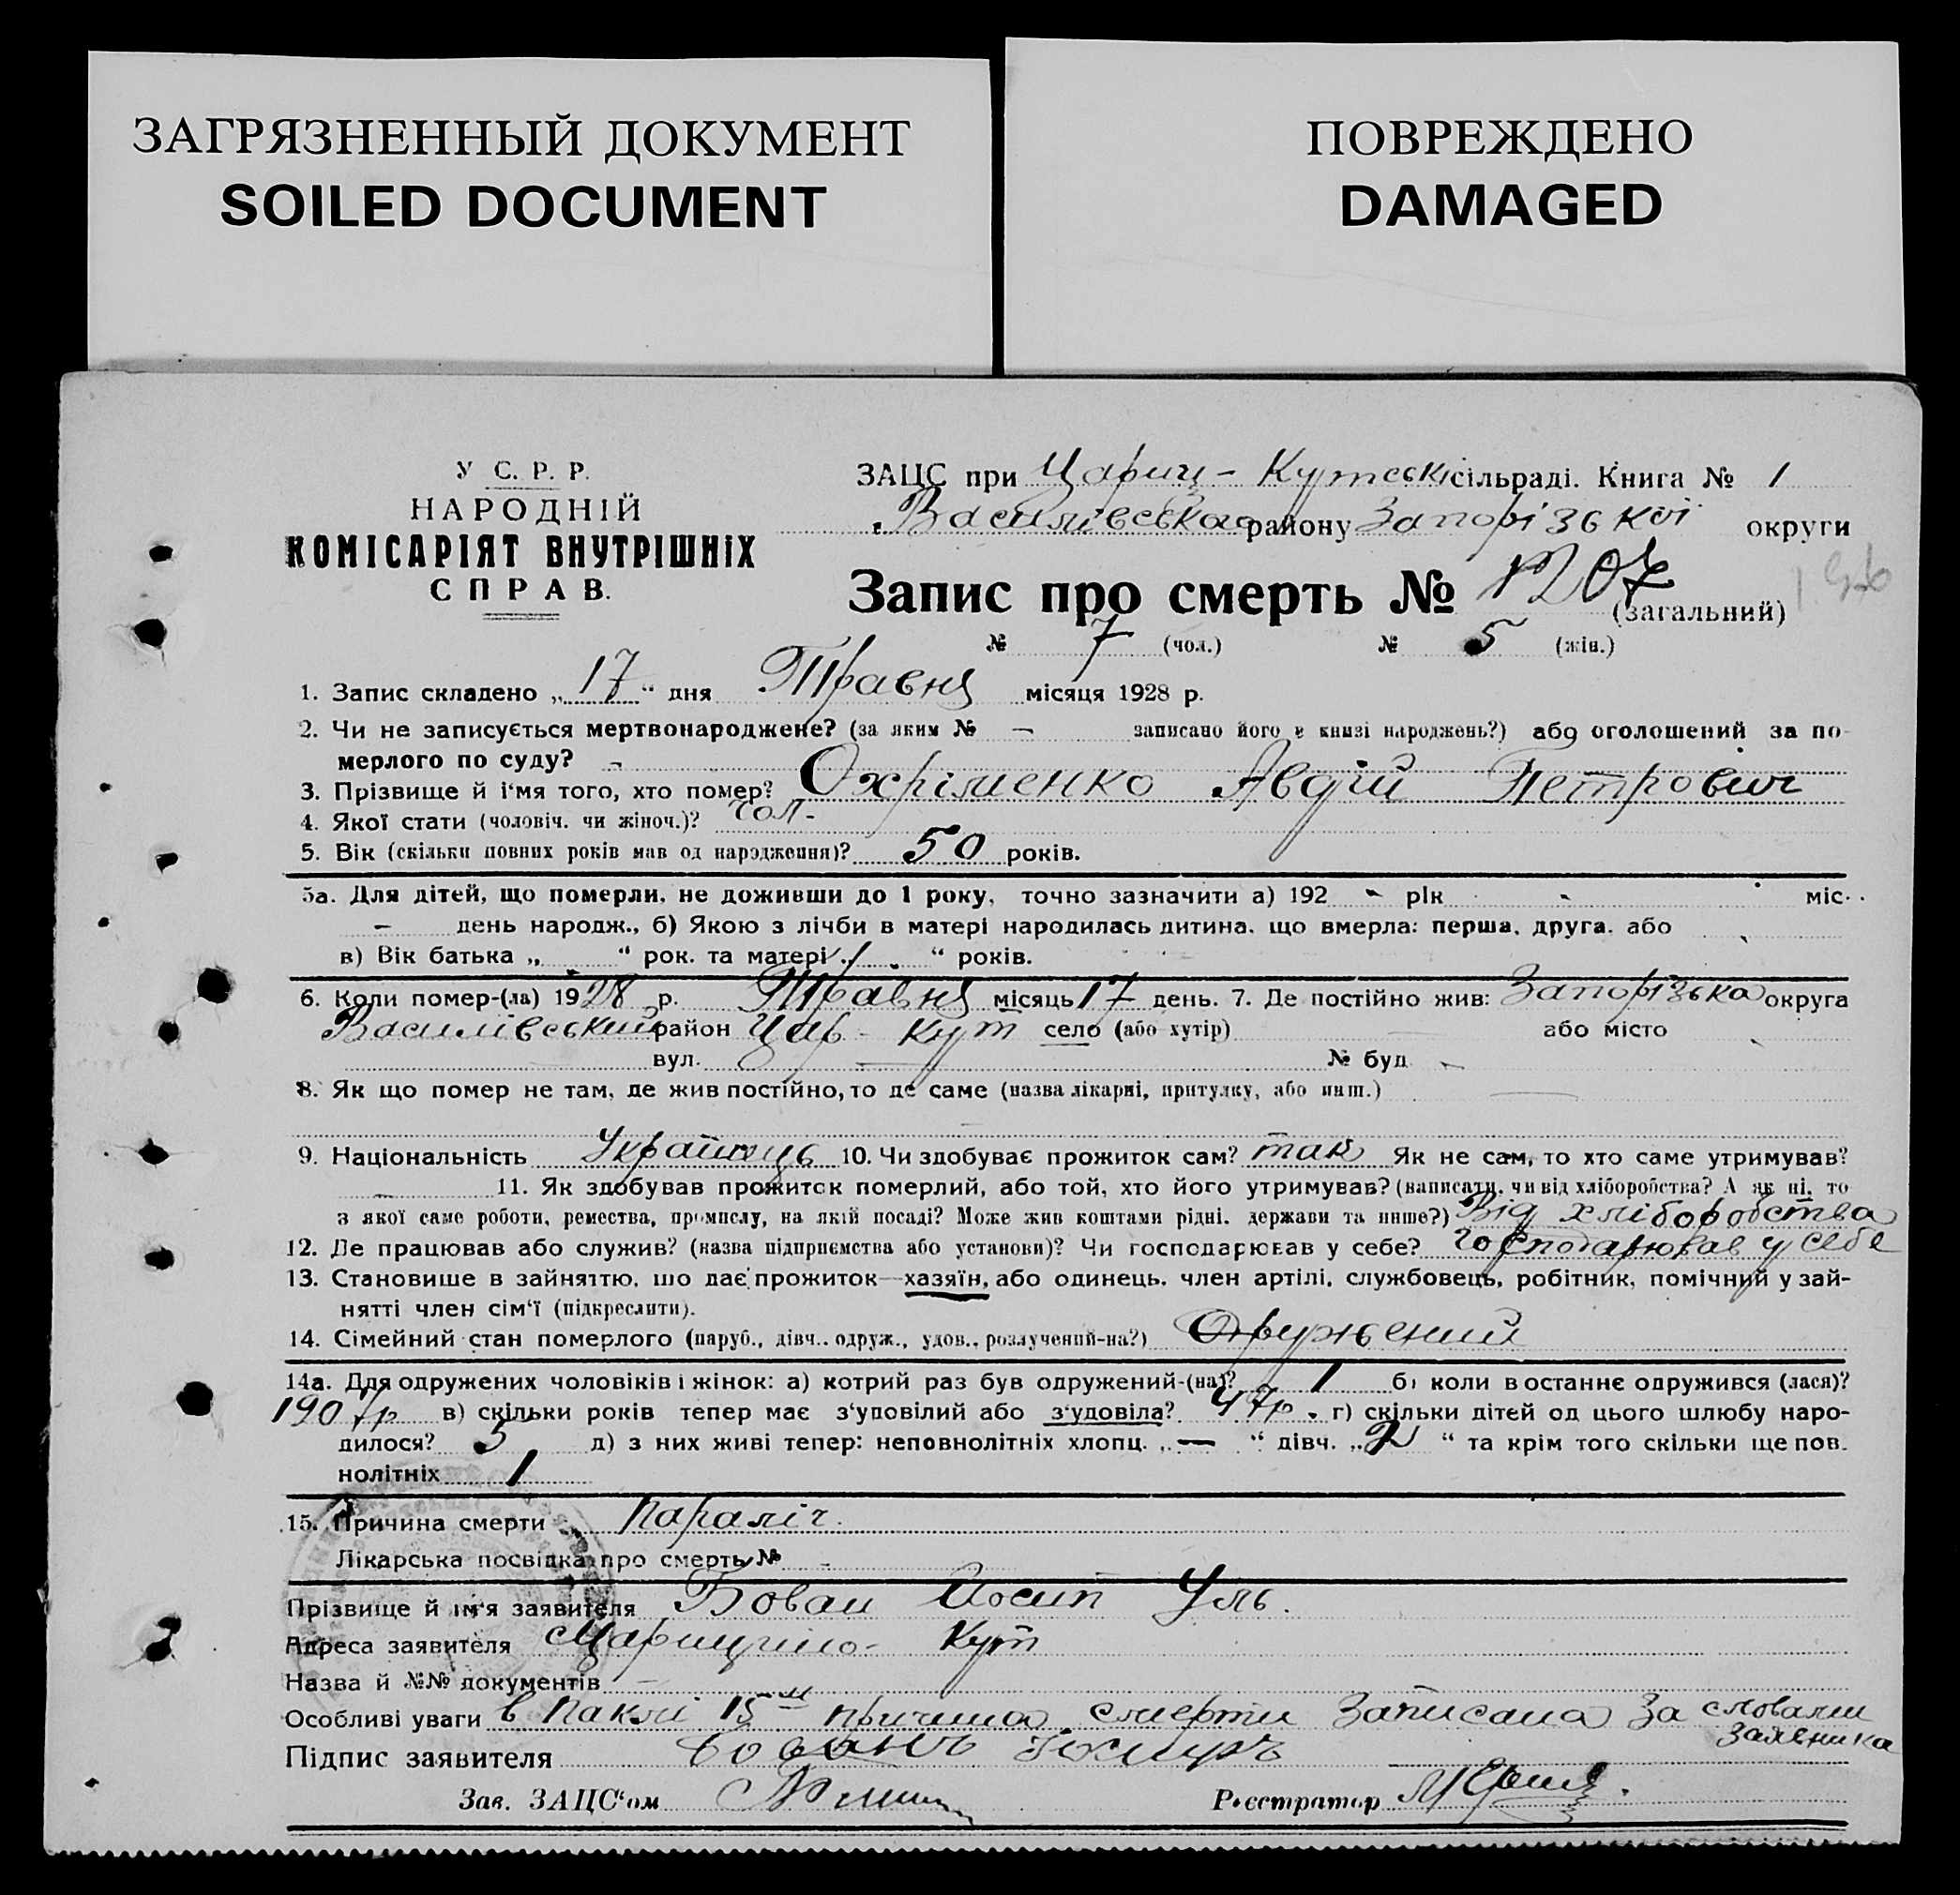 ЗАГРЯЗНЕННЫЙ ДОКУМЕНТ
SOILED DOCUMENT
ПОВРЕЖДЕНО
DAMAGED
У С. Р. Р.
НАРОДНІЙ
КОМІСАРІЯТ ВНУТРІШНІХ
СПРАВ.
ЗАЦС при Цариц-Кутській сільраді. Книга № 1
Василівського району Запорізької округи
Запис про смерть № (загальний)
№ 7 (чол.) № 5 (жін.)
1. Запис складено „17“ дня Травня місяця 1928 р.
2. Чи не записується мертвонароджене? (за яким № – записано його в книзі народжень?) або оголошений за по-
мерлого по суду? -
3. Прізвище й і'мя того, хто помер? Охріменко Авдій Петрович
4. Якої стати (чоловіч. чи жіноч.)? чол.
5. Вік (скільки повних років мав од народження)? 50 років.
5а. Для дітей, що померли, не доживши до 1 року, точно зазначити а) 192 - рік - міс.
– день народж., б) Якою з лічби в матері народилась дитина, що вмерла: перша, друга, або
в) Вік батька „ “ рок. та матері „ “ років.
6. Коли помер-(ла) 1928 р. Травня місяць 17 день. 7. Де постійно жив: Запорізька округа
Василівський район Цар-Кут село (або хутір) – або місто
вул. – № буд -
8. Як що помер не там, де жив постійно, то де саме (назва лікарні, притулку, або инш.) –
9. Національність Українець 10. Чи здобуває прожиток сам? так Як не сам, то хто саме утримував?
– 11. Як здобував прожиток померлий, або той, хто його утримував? (написати, чи від хліборобства? А як ні, то
з якої саме роботи, ремества, промислу, на якій посаді? Може жив коштами рідні, держави та инше?) Від хліборобства
12. Де працював або служив? (назва підприємства або установи)? Чи господарював у себе? Господарював у себе
13. Становище в зайняттю, що дає прожиток—хазяїн, або одинець, член артілі, службовець, робітник, помічний у зай-
нятті член сім'ї (підкреслити).
14. Сімейний стан померлого (паруб., дівч., одруж., удов., розлучений-на?) Одружений
14а. Для одружених чоловіків і жінок: а) котрий раз був одружений-(на)? 1 б) коли востаннє одружився (лася)?
1907р в) скільки років тепер має з'удовілий або з'удовіла? 47р. г) скільки дітей од цього шлюбу наро-
дилося? 5 д) з них живі тепер: неповнолітніх хлопц. „—“ дівч. „2“ та крім того скільки ще пов.
нолітніх 1
15. Причина смерти параліч.
Лікарська посвідка про смерть № -
Прізвище й ім'я заявителя Бован Йосип Уль.
Адреса заявителя Царицино-Кут
Назва й №№ документів –
Особливі уваги в пакті 15м причина смерти записана за словами
заявника
Підпис заявителя Бованъ
Зав. ЗАЦС'ом
Реєстратор